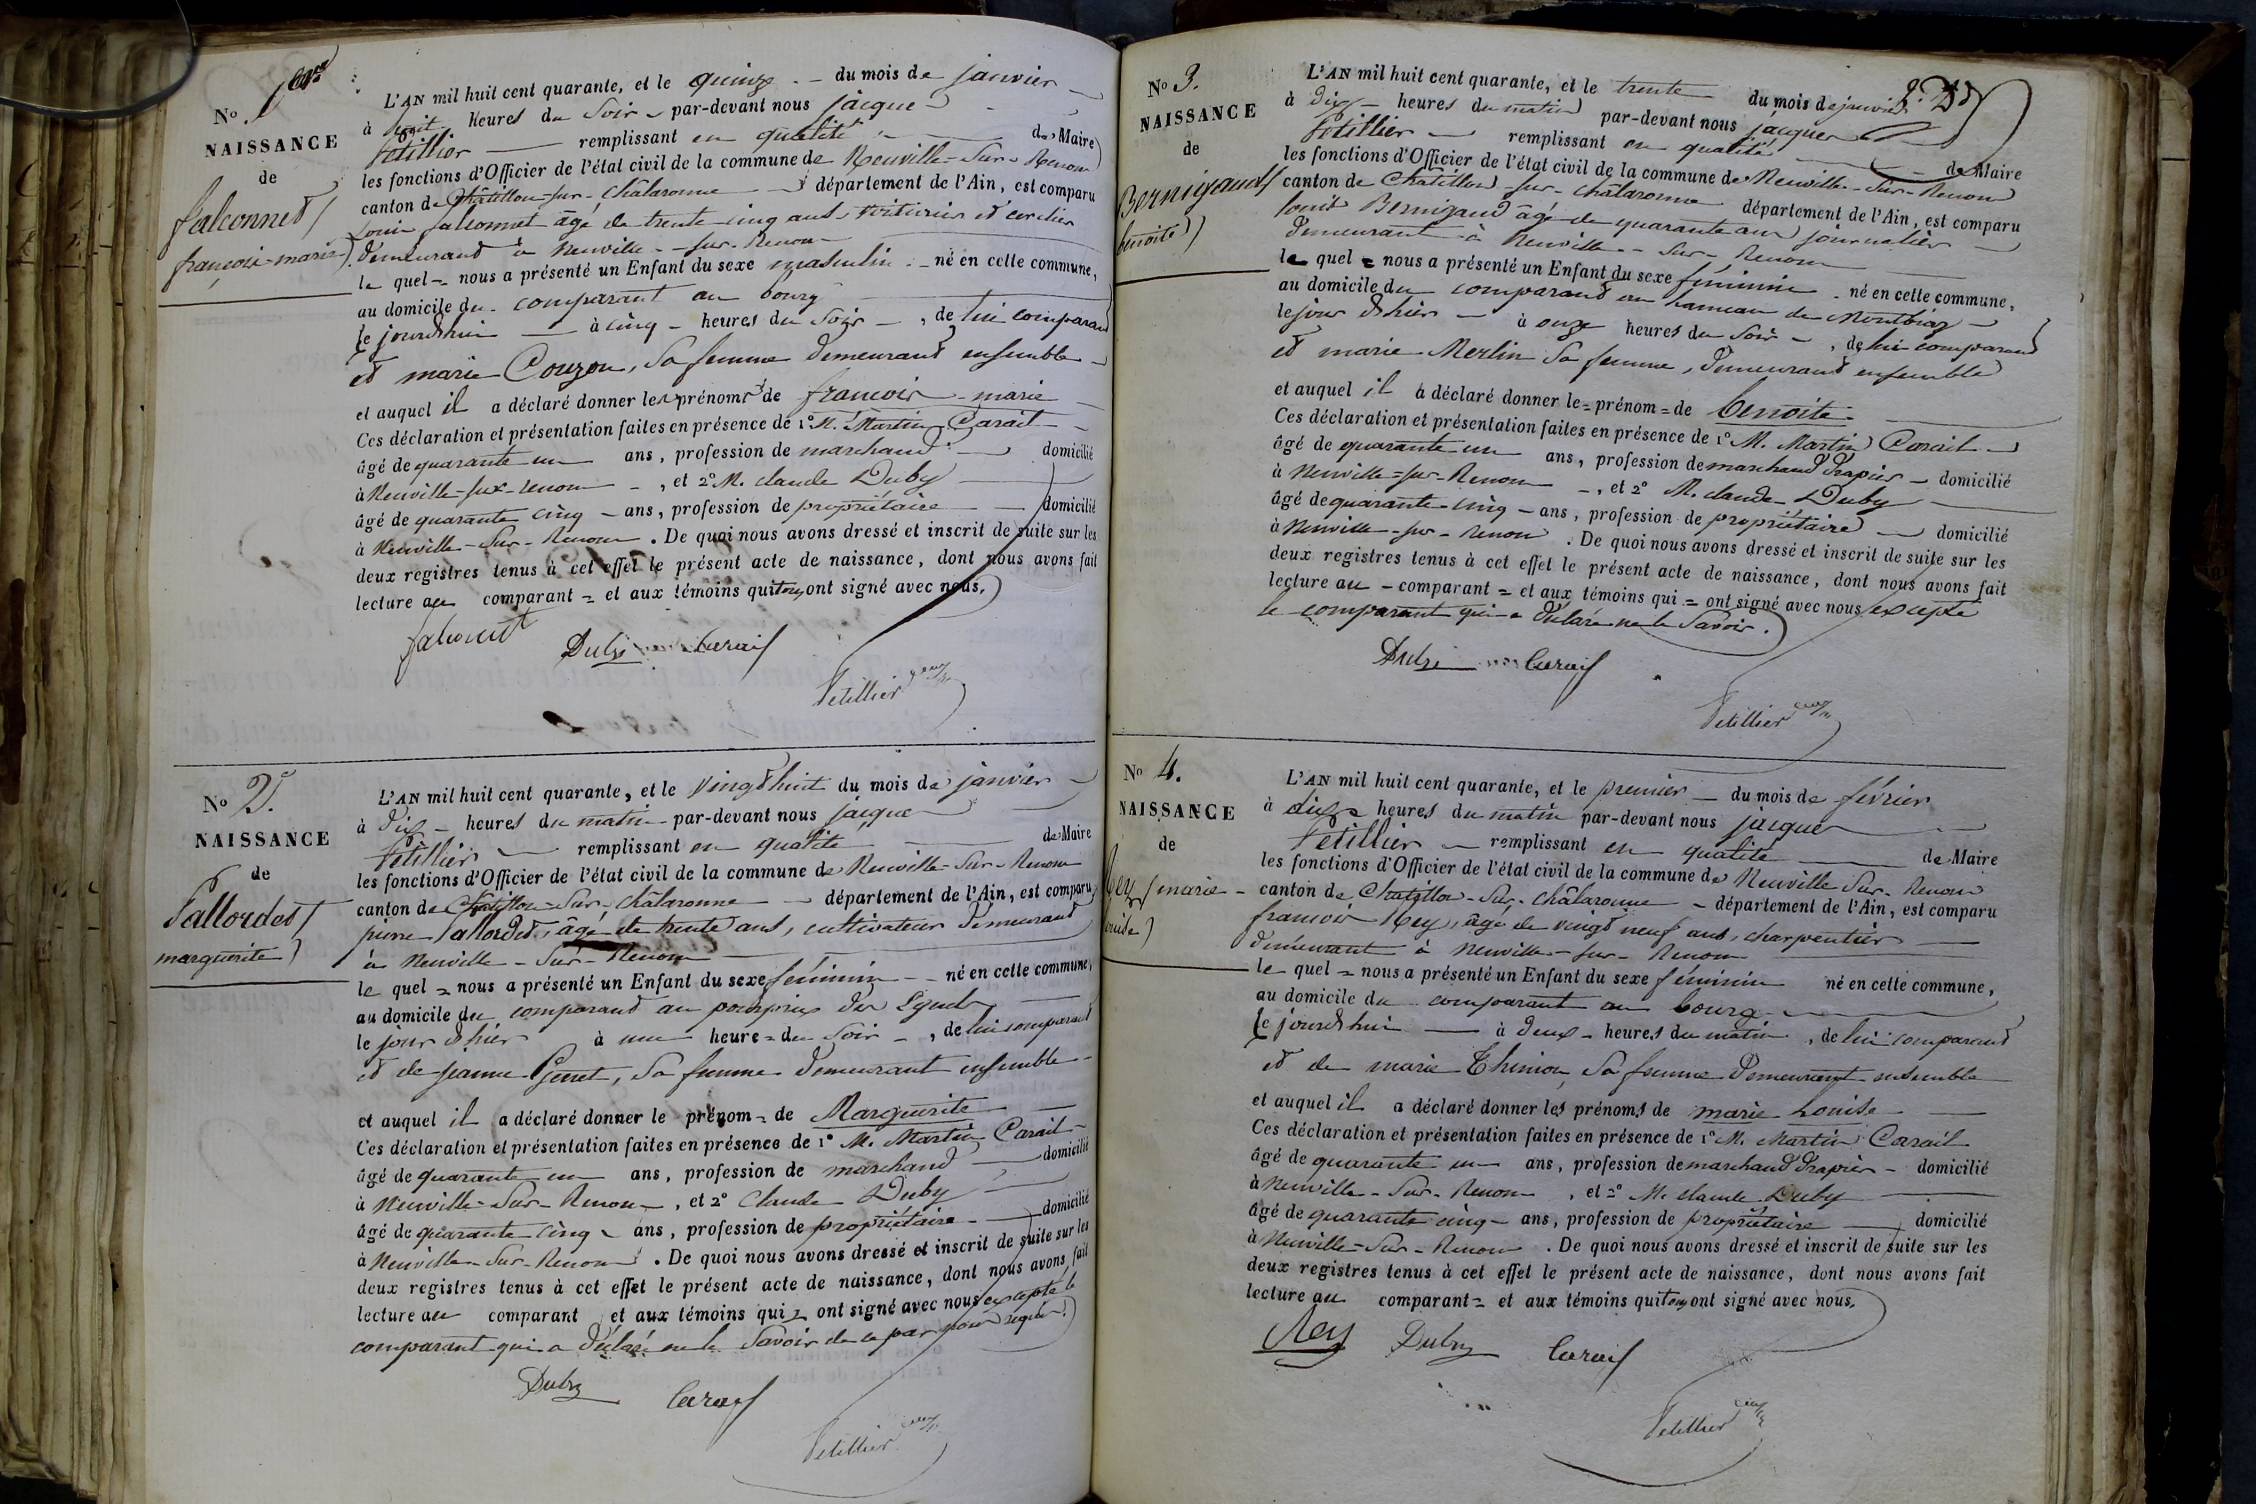 No 1er
NAISSANCE
de
falconnet
françois-marie
L'AN mil huit cent quarante, et le quinze du mois de janvier
à huit heures du Soir par-devant nous jacques
Petillier remplissant en qualité de Maire
les fonctions d'Officier de l'état civil de la commune de Neuville-Sur-Renom
canton de Châtillon-sur-Châlaronne département de l'Ain, est comparu
Louis falconnet âgé de trente cinq ans voiturier et cerclier
demeurant à Neuville-sur-Renom
le quel = nous a présenté un Enfant du sexe masculin né en cette commune,
au domicile du comparant au bourg
le jourd'hui à cinq heures du Soir, de lui comparant
et marie Couzon, Sa femme demeurant ensemble
et auquel il a déclaré donner les prénoms de francois-marie
Ces déclaration et présentation faites en présence de 1° M. Martin Carait
âgé de quarante un ans, profession de marchand domicilié
à Neuville-sur-renom, et 2° M. claude Duby
âgé de quarante cinq ans, profession de propriétaire domicilié
à Neuville-Sur-Renom. De quoi nous avons dressé et inscrit de suite sur les
deux registres tenus à cet effet le présent acte de naissance, dont nous avons fait
lecture au comparant = et aux témoins qui tous ont signé avec nous.
falconnet Duby Carait
Petillier
No 2.
NAISSANCE
de
Pallordet
marguerite
L'AN mil huit cent quarante, et le vingt huit du mois de janvier
à dix heures du matin par-devant nous jacques
Petillier remplissant en qualité de Maire
les fonctions d'Officier de l'état civil de la commune de Neuville-Sur-Renom
canton de Châtillon-Sur-Châlaronne département de l'Ain, est comparu
pierre Pallordet, âgé de trente ans, cultivateur demeurant
à Neuville-Sur-Renom
le quel = nous a présenté un Enfant du sexe féminin né en cette commune,
au domicile du comparant au pourpris des
le jour d'hier à une heure = du Soir, de lui comparant
et de jeanne, Sa femme demeurant ensemble
et auquel il a déclaré donner le prénom = de Marguerite
Ces déclaration et présentation faites en présence de 1° M. Martin Carait
âgé de quarante un ans, profession de marchand domicilié
à Neuville-Sur-Renom, et 2° Claude Duby
âgé de quarante cinq ans, profession de propriétaire domicilié
à Neuville-Sur-Renom. De quoi nous avons dressé et inscrit de suite sur les
deux registres tenus à cet effet le présent acte de naissance, dont nous avons fait
lecture au comparant et aux témoins qui = ont signé avec nous excepté le
comparant qui a déclaré ne le Savoir de ce par nous requis.
Duby Carait
Petillier
No 3.
NAISSANCE
de
Bernigaud
benoite
L'AN mil huit cent quarante, et le trente du mois de janvier
à dix heures du matin par-devant nous jacques
Petillier remplissant en qualité de Maire
les fonctions d'Officier de l'état civil de la commune de Neuville-Sur-Renom
canton de Châtillon-sur-châlaronne département de l'Ain, est comparu
louis Bernigaud âgé de quarante ans journalier
demeurant à Neuville-Sur-Renom
le quel = nous a présenté un Enfant du sexe féminin né en cette commune,
au domicile du comparant au hameau de Montbiaz
le jour d'hier à onze heures du Soir, de lui comparant
et marie Merlin Sa femme, demeurant ensemble
et auquel il a déclaré donner le = prénom = de benoite
Ces déclaration et présentation faites en présence de 1° M. Martin Carait
âgé de quarante un ans, profession de marchand drapier domicilié
à Neuville-sur-Renom, et 2° M. claude Duby
âgé de quarante cinq ans, profession de propriétaire domicilié
à Neuville-sur-Renom. De quoi nous avons dressé et inscrit de suite sur les
deux registres tenus à cet effet le présent acte de naissance, dont nous avons fait
lecture au comparant = et aux témoins qui = ont signé avec nous excepté
le comparant qui a déclaré ne le Savoir.
Duby Carait
Petillier
No 4.
NAISSANCE
de
Rey marie-
Louise
L'AN mil huit cent quarante, et le premier du mois de février
à dix heures du matin par-devant nous jacques
Petillier remplissant en qualité de Maire
les fonctions d'Officier de l'état civil de la commune de Neuville Sur-Renom
canton de Châtillon-Sur-châlaronne département de l'Ain, est comparu
francois Rey, âgé de vingt neuf ans, charpentier
demeurant à Neuville-sur-Renom
le quel = nous a présenté un Enfant du sexe féminin né en cette commune,
au domicile du comparant au bourg
le jourd'hui à deux heures du matin, de lui comparant
et de marie Thinion, Sa femme demeurant ensemble
et auquel il a déclaré donner les prénoms de marie Louise
Ces déclaration et présentation faites en présence de 1° M. Martin Carait
âgé de quarante un ans, profession de marchand drapier domicilié
à Neuville-Sur-Renom, et 2° M. claude Duby
âgé de quarante cinq ans, profession de propriétaire domicilié
à Neuville-Sur-Renom. De quoi nous avons dressé et inscrit de suite sur les
deux registres tenus à cet effet le présent acte de naissance, dont nous avons fait
lecture au comparant = et aux témoins qui tous ont signé avec nous.
Rey Duby Carait
Petillier